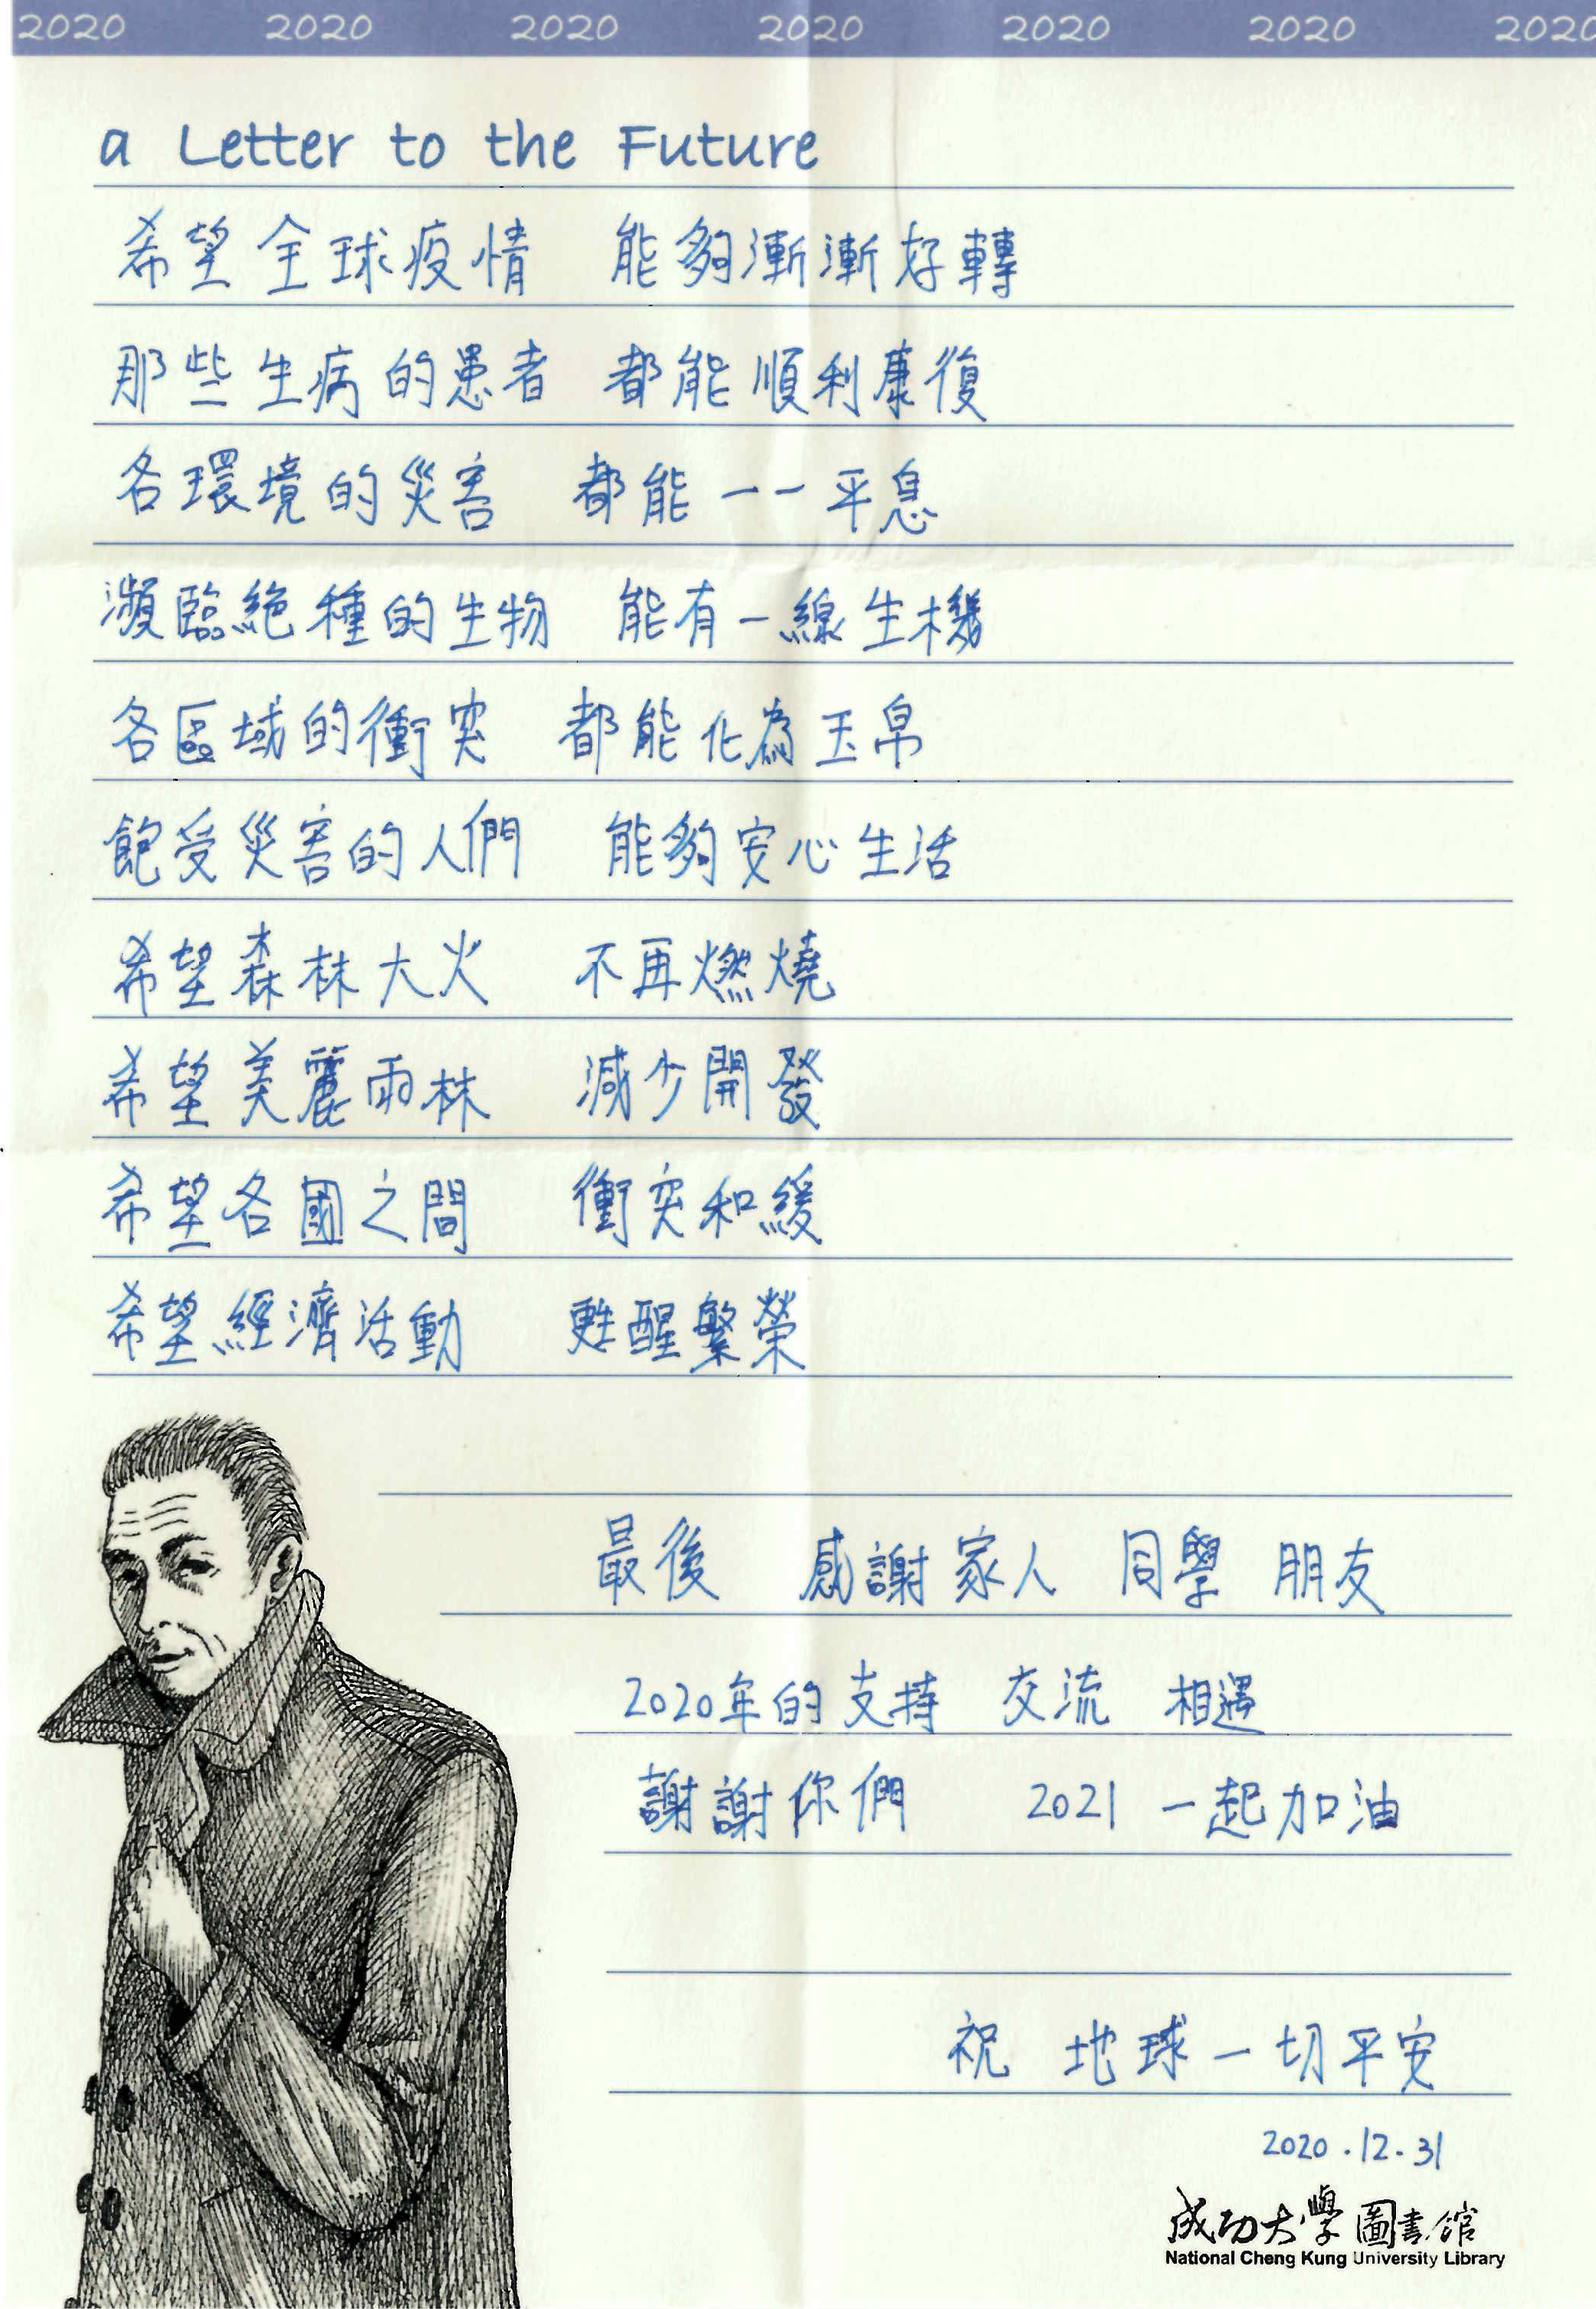 2020 2020 2020 2020 2020 2020 2020
a Letter to the Future
希望全球疫情 能夠漸漸好轉
那些生病的患者 都能順利康復
各環境的災害 都能一一平息
瀕臨絕種的生物 能有一線生機
各區域的衝突 都能化為玉帛
飽受災害的人們 能夠安心生活
希望森林大火 不再燃燒
希望美麗雨林 減少開發
希望各國之間 衝突和緩
希望經濟活動 甦醒繁榮
最後 感謝家人 同學 朋友
2020年的支持 交流 相遇
謝謝你們 2021 一起加油
祝 地球一切平安
2020.12.31
成功大學圖書館
National Cheng Kung University Library